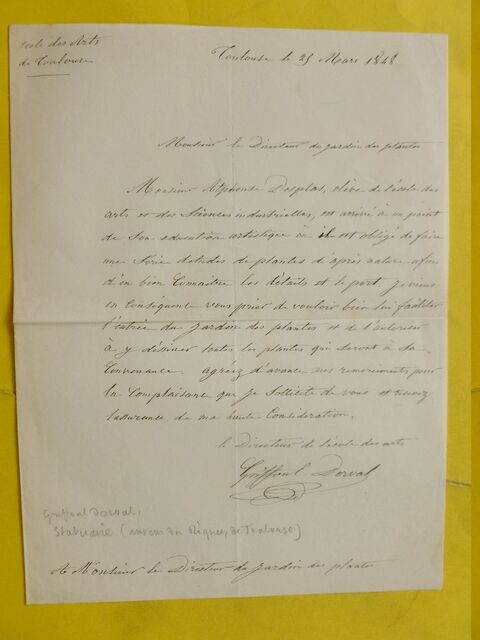 école des Arts
de Toulouse
Toulouse le 25 Mars 1848
Monsieur le Directeur du jardin des plantes
Monsieur Alphonse Desplas, élève de l'école des
arts et des Sciences industrielles, est arrivé à un point
de son education artistique où il est obligé de faire
une Série détudes de plantes d'après nature afin
d'en bien Connaitre les détails et le port, je viens
en Conséquence vous prier de vouloir bien lui faciliter
l'entrée du Jardin des plantes et de l'autoriser
à y déssiner toutes les plantes qui seront à sa
Convenance. agréez d'avance mes remerciments pour
la Complaisance que je Sollicite de vous et recevez
l'assurance de ma haute Considération.
le Directeur de l'école des arts
Griffoul Dorval
Griffoul Dorval,
Statuaire (auteur du Riquet, de Toulouse)
A Monsieur le Directeur du Jardin des plantes